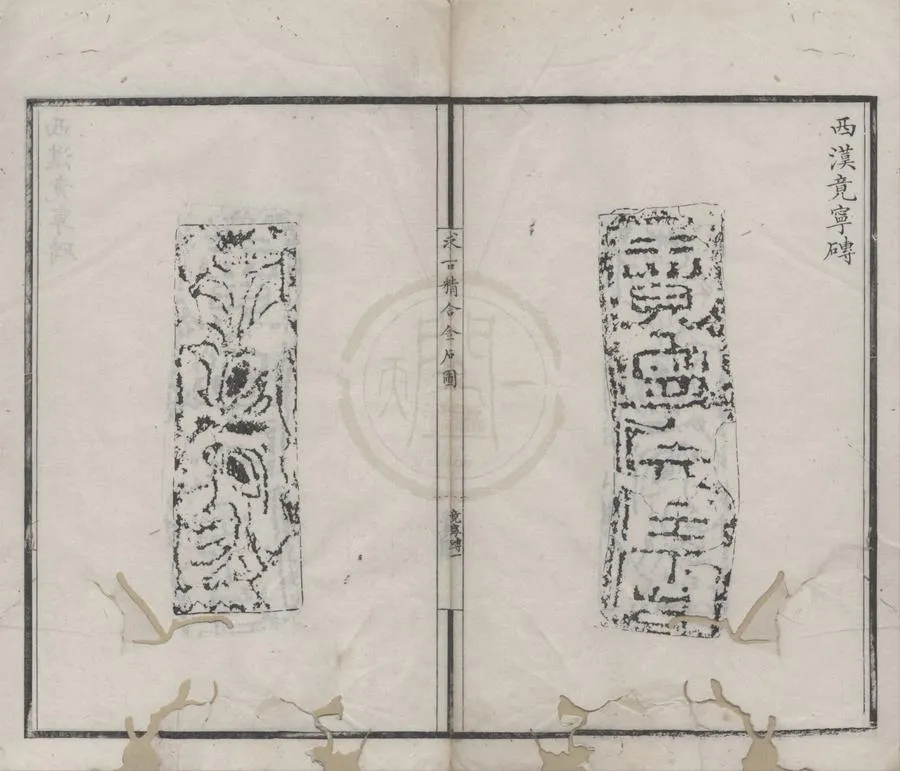 西漢竟寧磚
竟寧元年
求古精舍金石圖
竟寧磚一